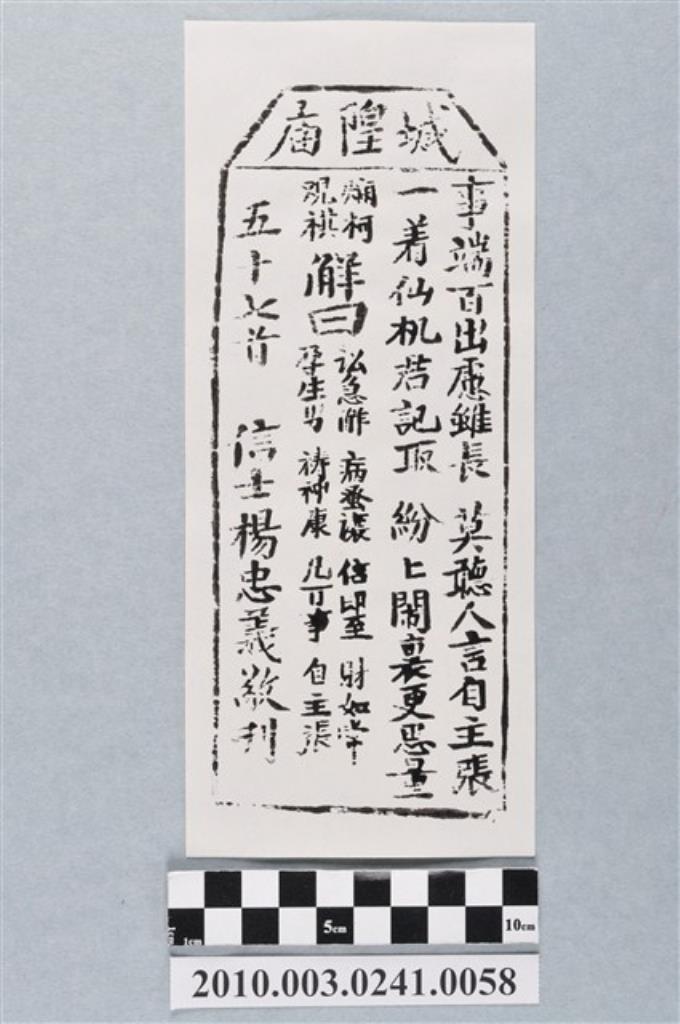 城隍庙
事端百出慮雖長 莫聽人言自主張
一着仙机君記取 紛匕鬧裏更思量
爛柯
观棋
解曰
訟急解 病蚤禳 信即至 財如常
孕生男 祷神康 凡百事 自主張
五十七首 信士楊忠義敬刊
1cm 5cm 10cm
2010.003.0241.0058